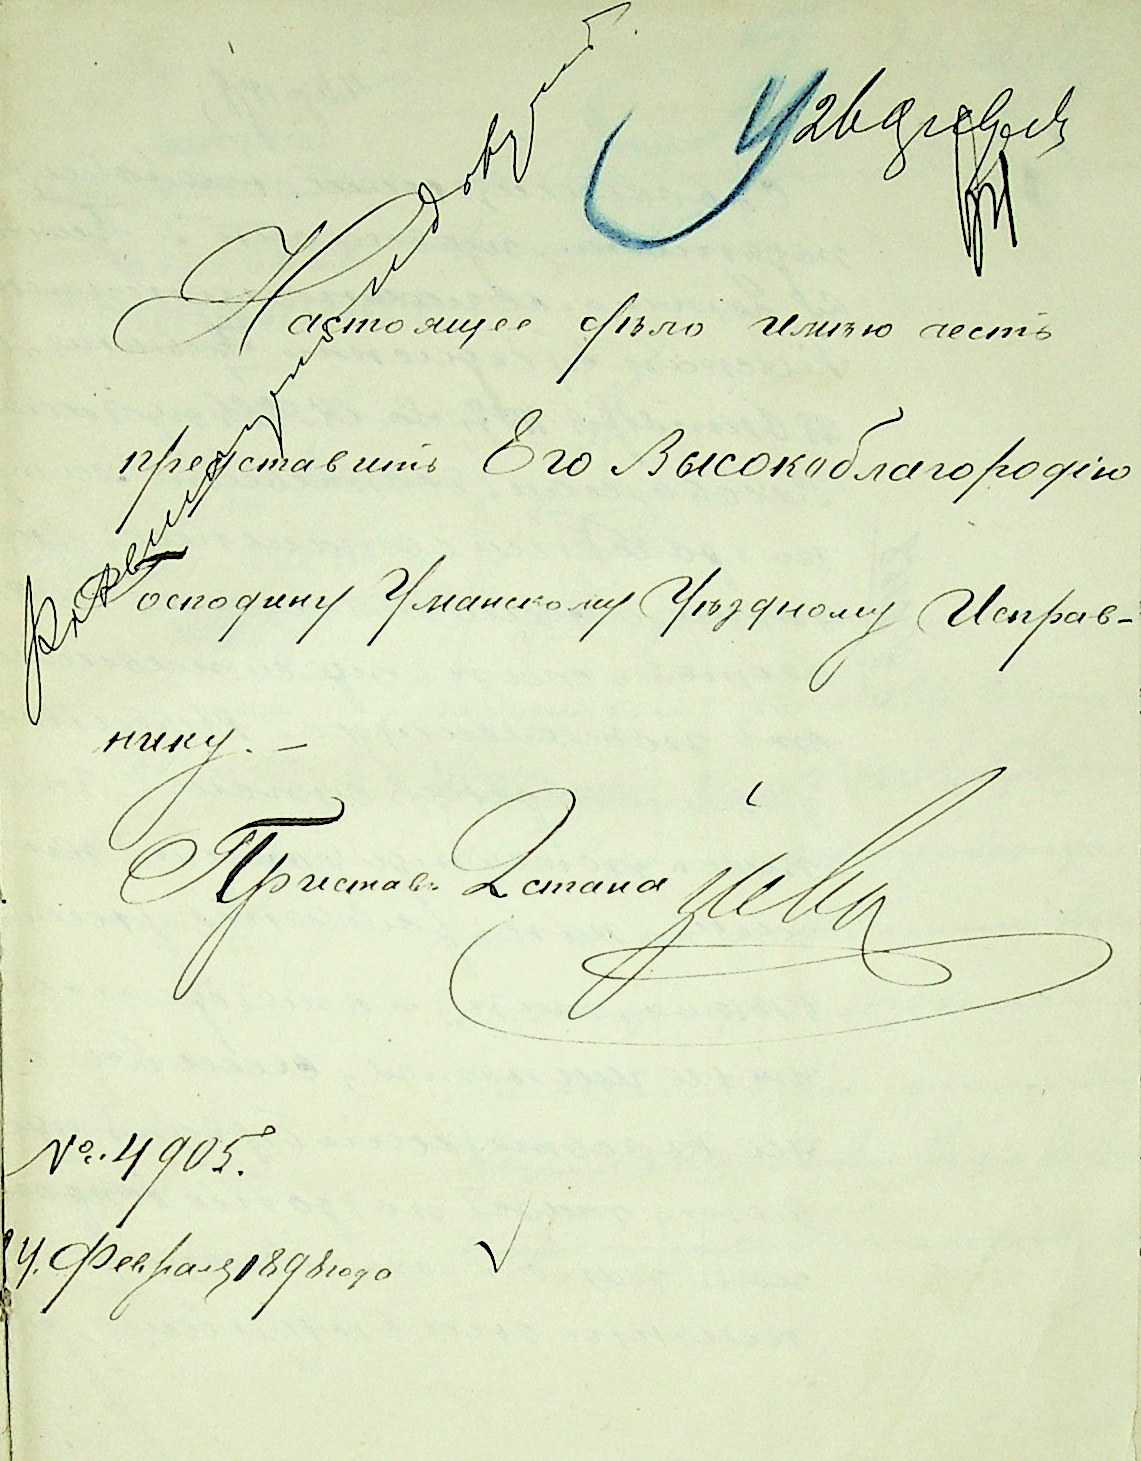 Настоящее дѣло имѣю честь
представить Его Высокоблагородію
Господину Уманскому Уѣздному Исправ-
нику. —
Приставъ 2 стана
№ 4905.
24. Февраля 1898 года